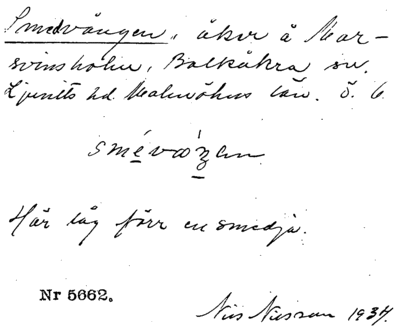 Smedvången, åker å Mar-
svinsholm, Balkåkra sn.
Ljunits hd. Malmöhus län. Ö. 6.
Här låg förr en smedja.
Nr 5662.
Nils Nilsson 1934.